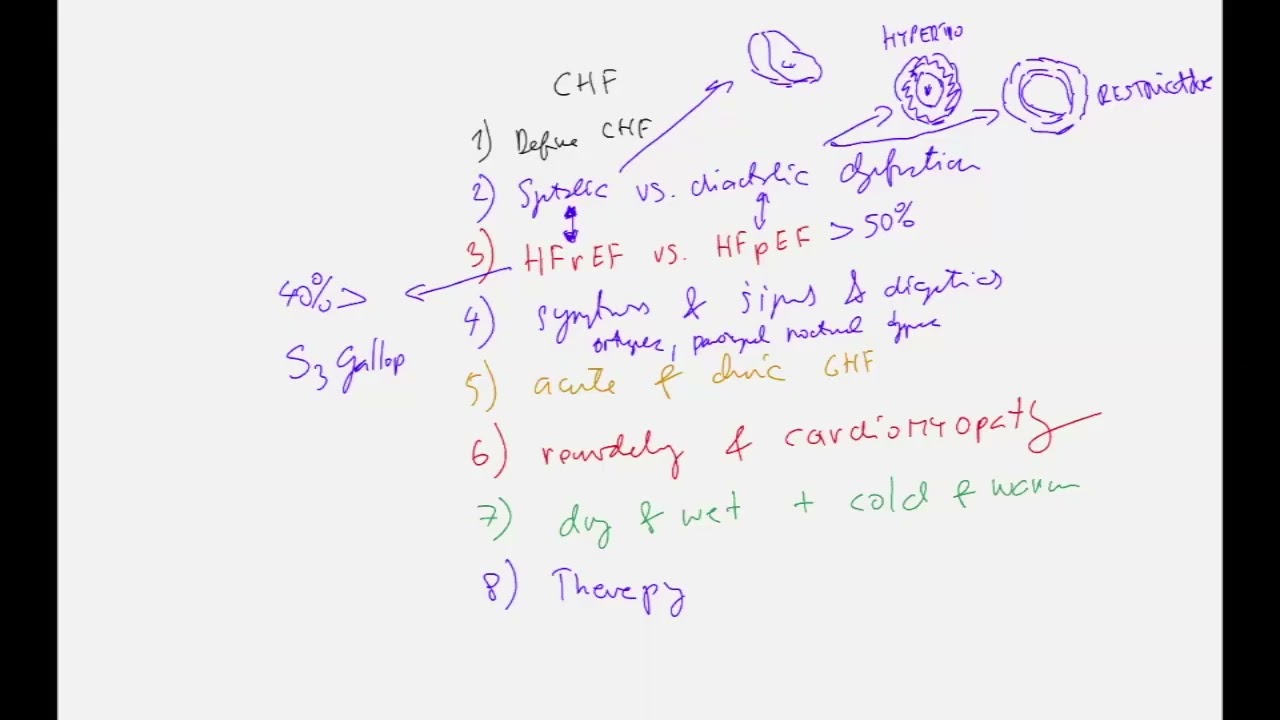 HYPERTRO
RESTRICTIVE
CHF
1) Define CHF
2) Systolic vs. diastolic dysfunction
3) HFrEF vs. HFpEF > 50%
40% >
4) symptoms & signs & diagnostics
S3 gallop
5) acute & chronic CHF
6) remodely & cardiomyopathy
7) dry & wet + cold & warm
8) Therepy